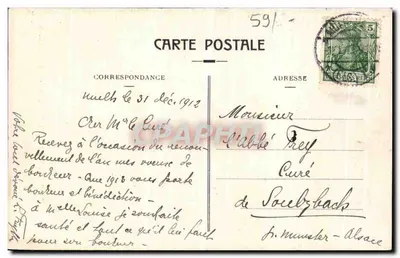 59/-
CARTE POSTALE
CORRESPONDANCE
ADRESSE
le 31 déc. 1912
Cher Mr le Curé
Recevez à l'occasion du renou-
vellement de l'an mes voeux de
bonheur. Que 1913 vous porte
bonheur et bénédiction.
à Melle Louise je souhaite
santé et tout ce qu'il lui faut
pour son bonheur.
Votre tout dévoué
Monsieur
l'Abbé Frey
Curé
de Soultzbach
p. Munster - Alsace
5